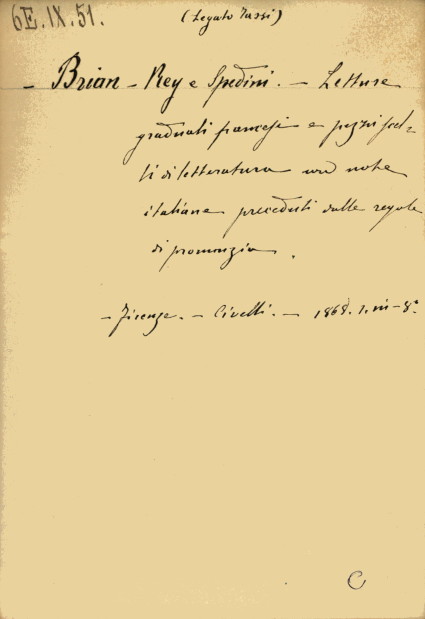 6E.IX.51.
(Legato Tassi)
- Brian - Rey e Spedini. - Letture
graduali francesi e pezzi scel-
ti di letteratura con note
italiane preceduti dalle regole
di pronunzia.
- Firenze. - Civelli. - 1868. 1. in - 8.°
C